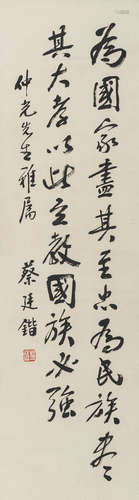 為國家盡其至忠為民族盡
其大孝以此立教國族必強
仲光先生雅屬
蔡廷鍇